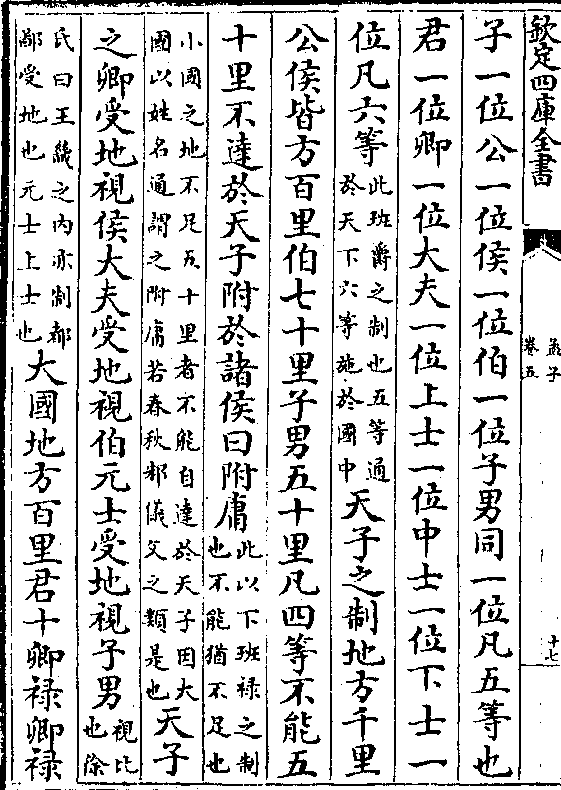 欽定四庫全書
孟子
卷五
十七
子一位公一位侯一位伯一位子男同一位凡五等也
君一位卿一位大夫一位上士一位中士一位下士一
位凡六等此班爵之制也五等通
於天下六等施於國中天子之制地方千里
公侯皆方百里伯七十里子男五十里凡四等不能五
十里不達於天子附於諸侯曰附庸此以下班祿之制
也不能猶不足也
小國之地不足五十里者不能自達於天子因大
國以姓名通謂之附庸若春秋邾儀父之類是也天子
之卿受地視侯大夫受地視伯元士受地視子男視比
也徐
氏曰王畿之内亦制都
鄙受地也元士上士也大國地方百里君十卿祿卿祿